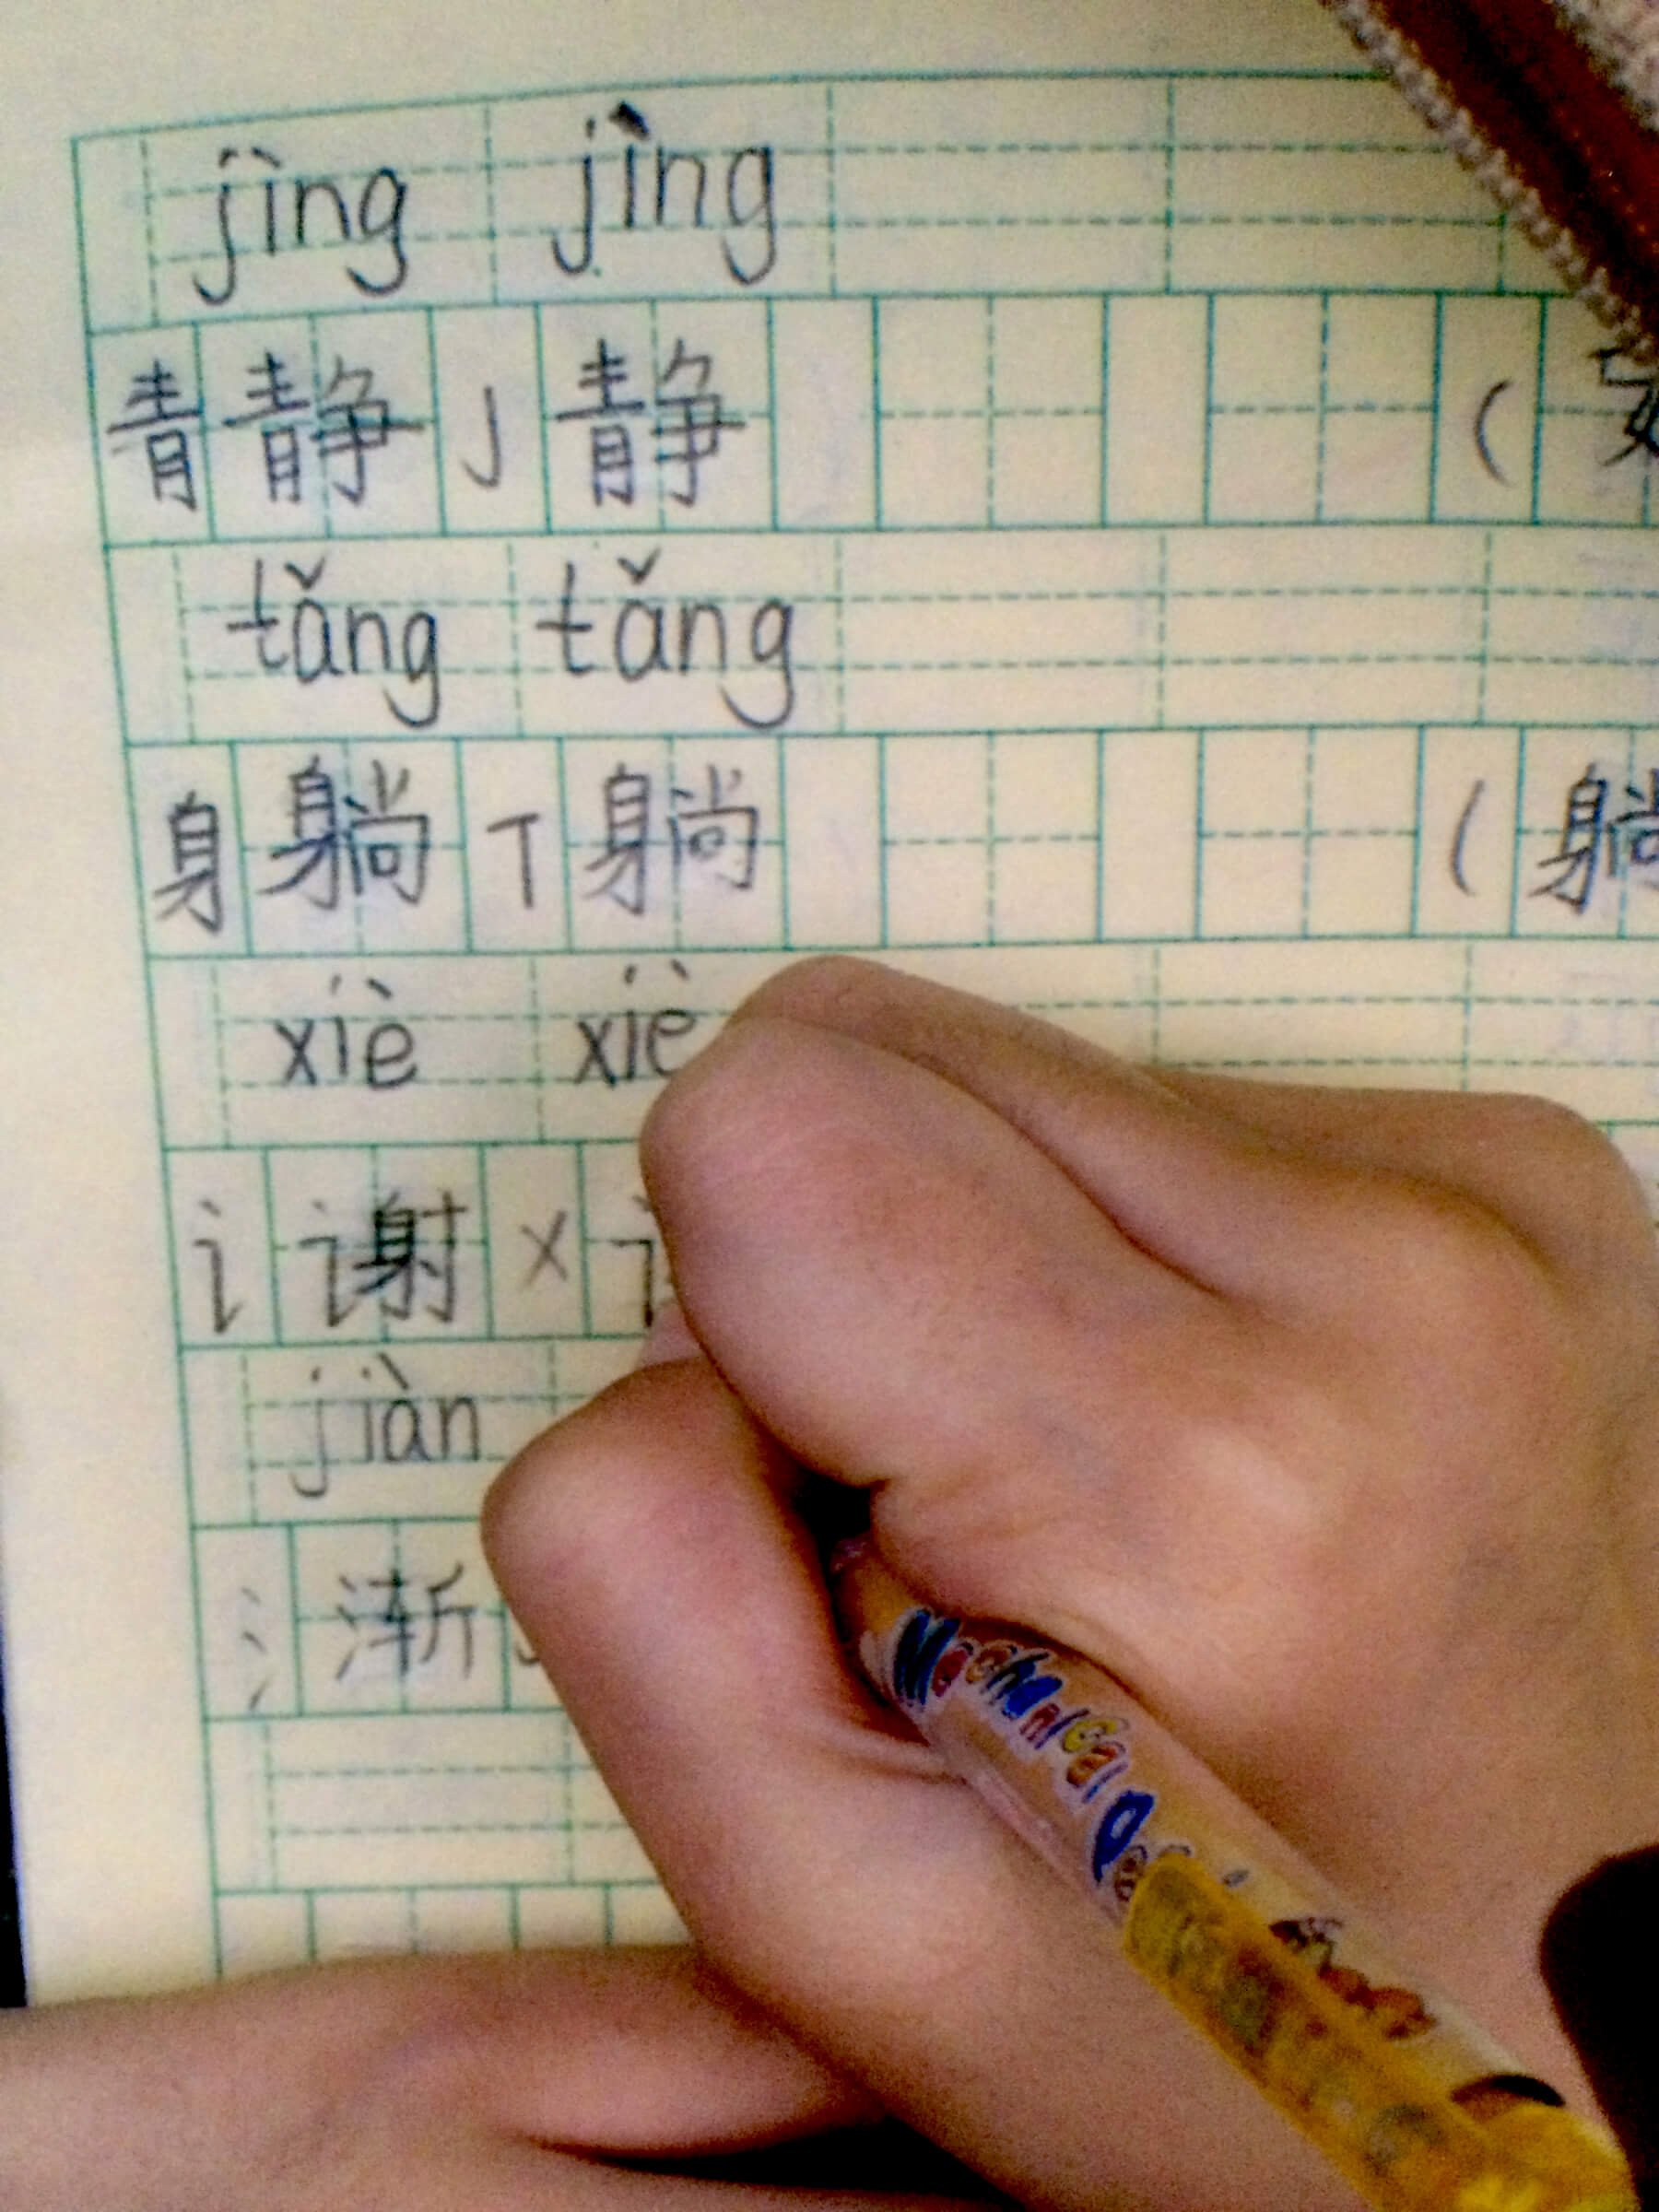 jìng jìng
青 静 J 静 (
tǎng tǎng
身 躺 T 躺 ( 躺
xiè xiè
讠 谢 X
jiàn
氵 渐
Mechanical